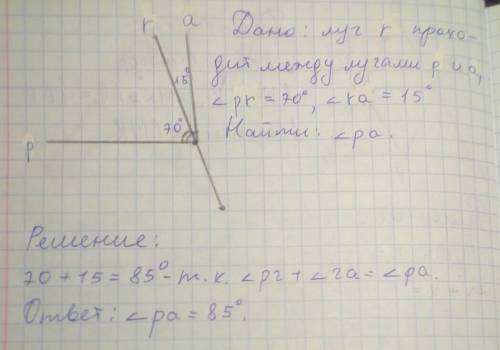 r a
Дано: луч r прохо-
15°
дит между лучами p и a,
∠pr = 70°, ∠ra = 15°
70°
Найти: ∠pa.
p
Решение:
70 + 15 = 85° - т.к. ∠pr + ∠ra = ∠pa.
Ответ: ∠pa = 85°.